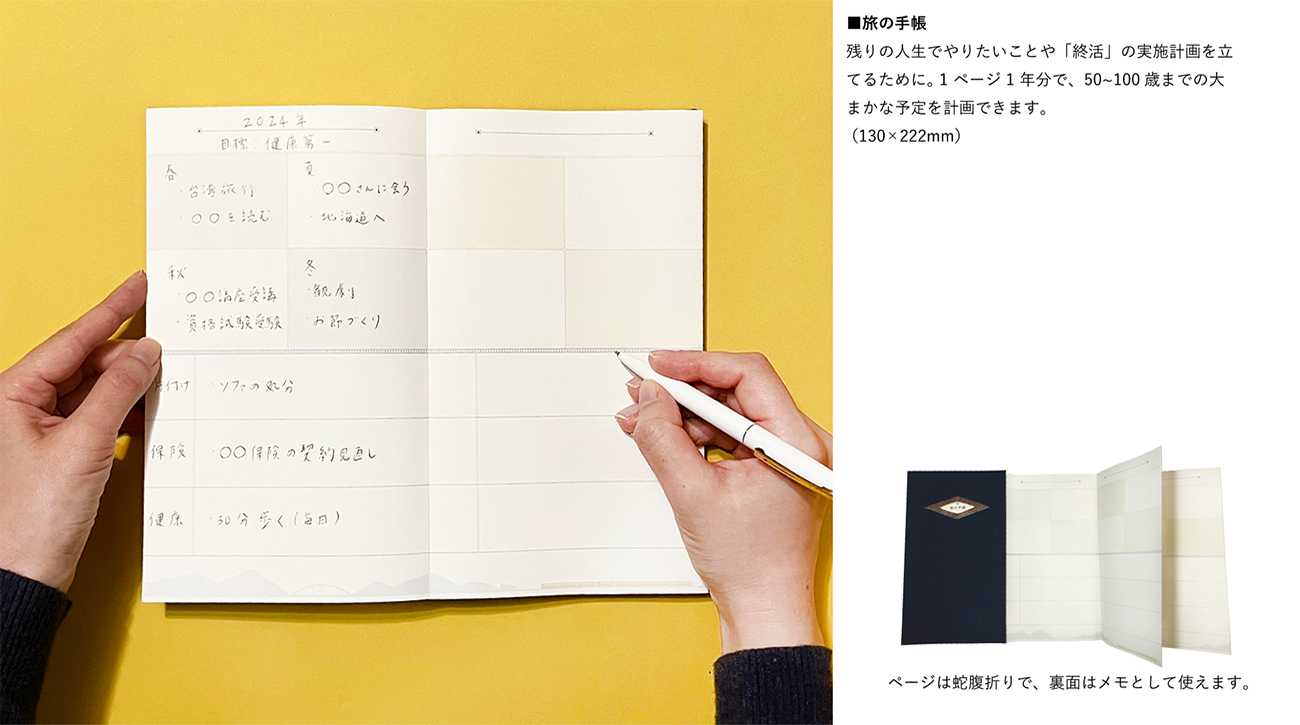 2024年
目標 健康第一
春
・台湾旅行
・〇〇を読む
夏
〇〇さんに会う
・北海道へ
秋
・〇〇講座受講
・資格試験受験
冬
・観劇
・お節づくり
片付け ・ソファの処分
保険 ・〇〇保険の契約見直し
健康 ・30分歩く(毎日)
■旅の手帳
残りの人生でやりたいことや「終活」の実施計画を立
てるために。1ページ1年分で、50~100歳までの大
まかな予定を計画できます。
（130×222mm）
旅の手帳
ページは蛇腹折りで、裏面はメモとして使えます。